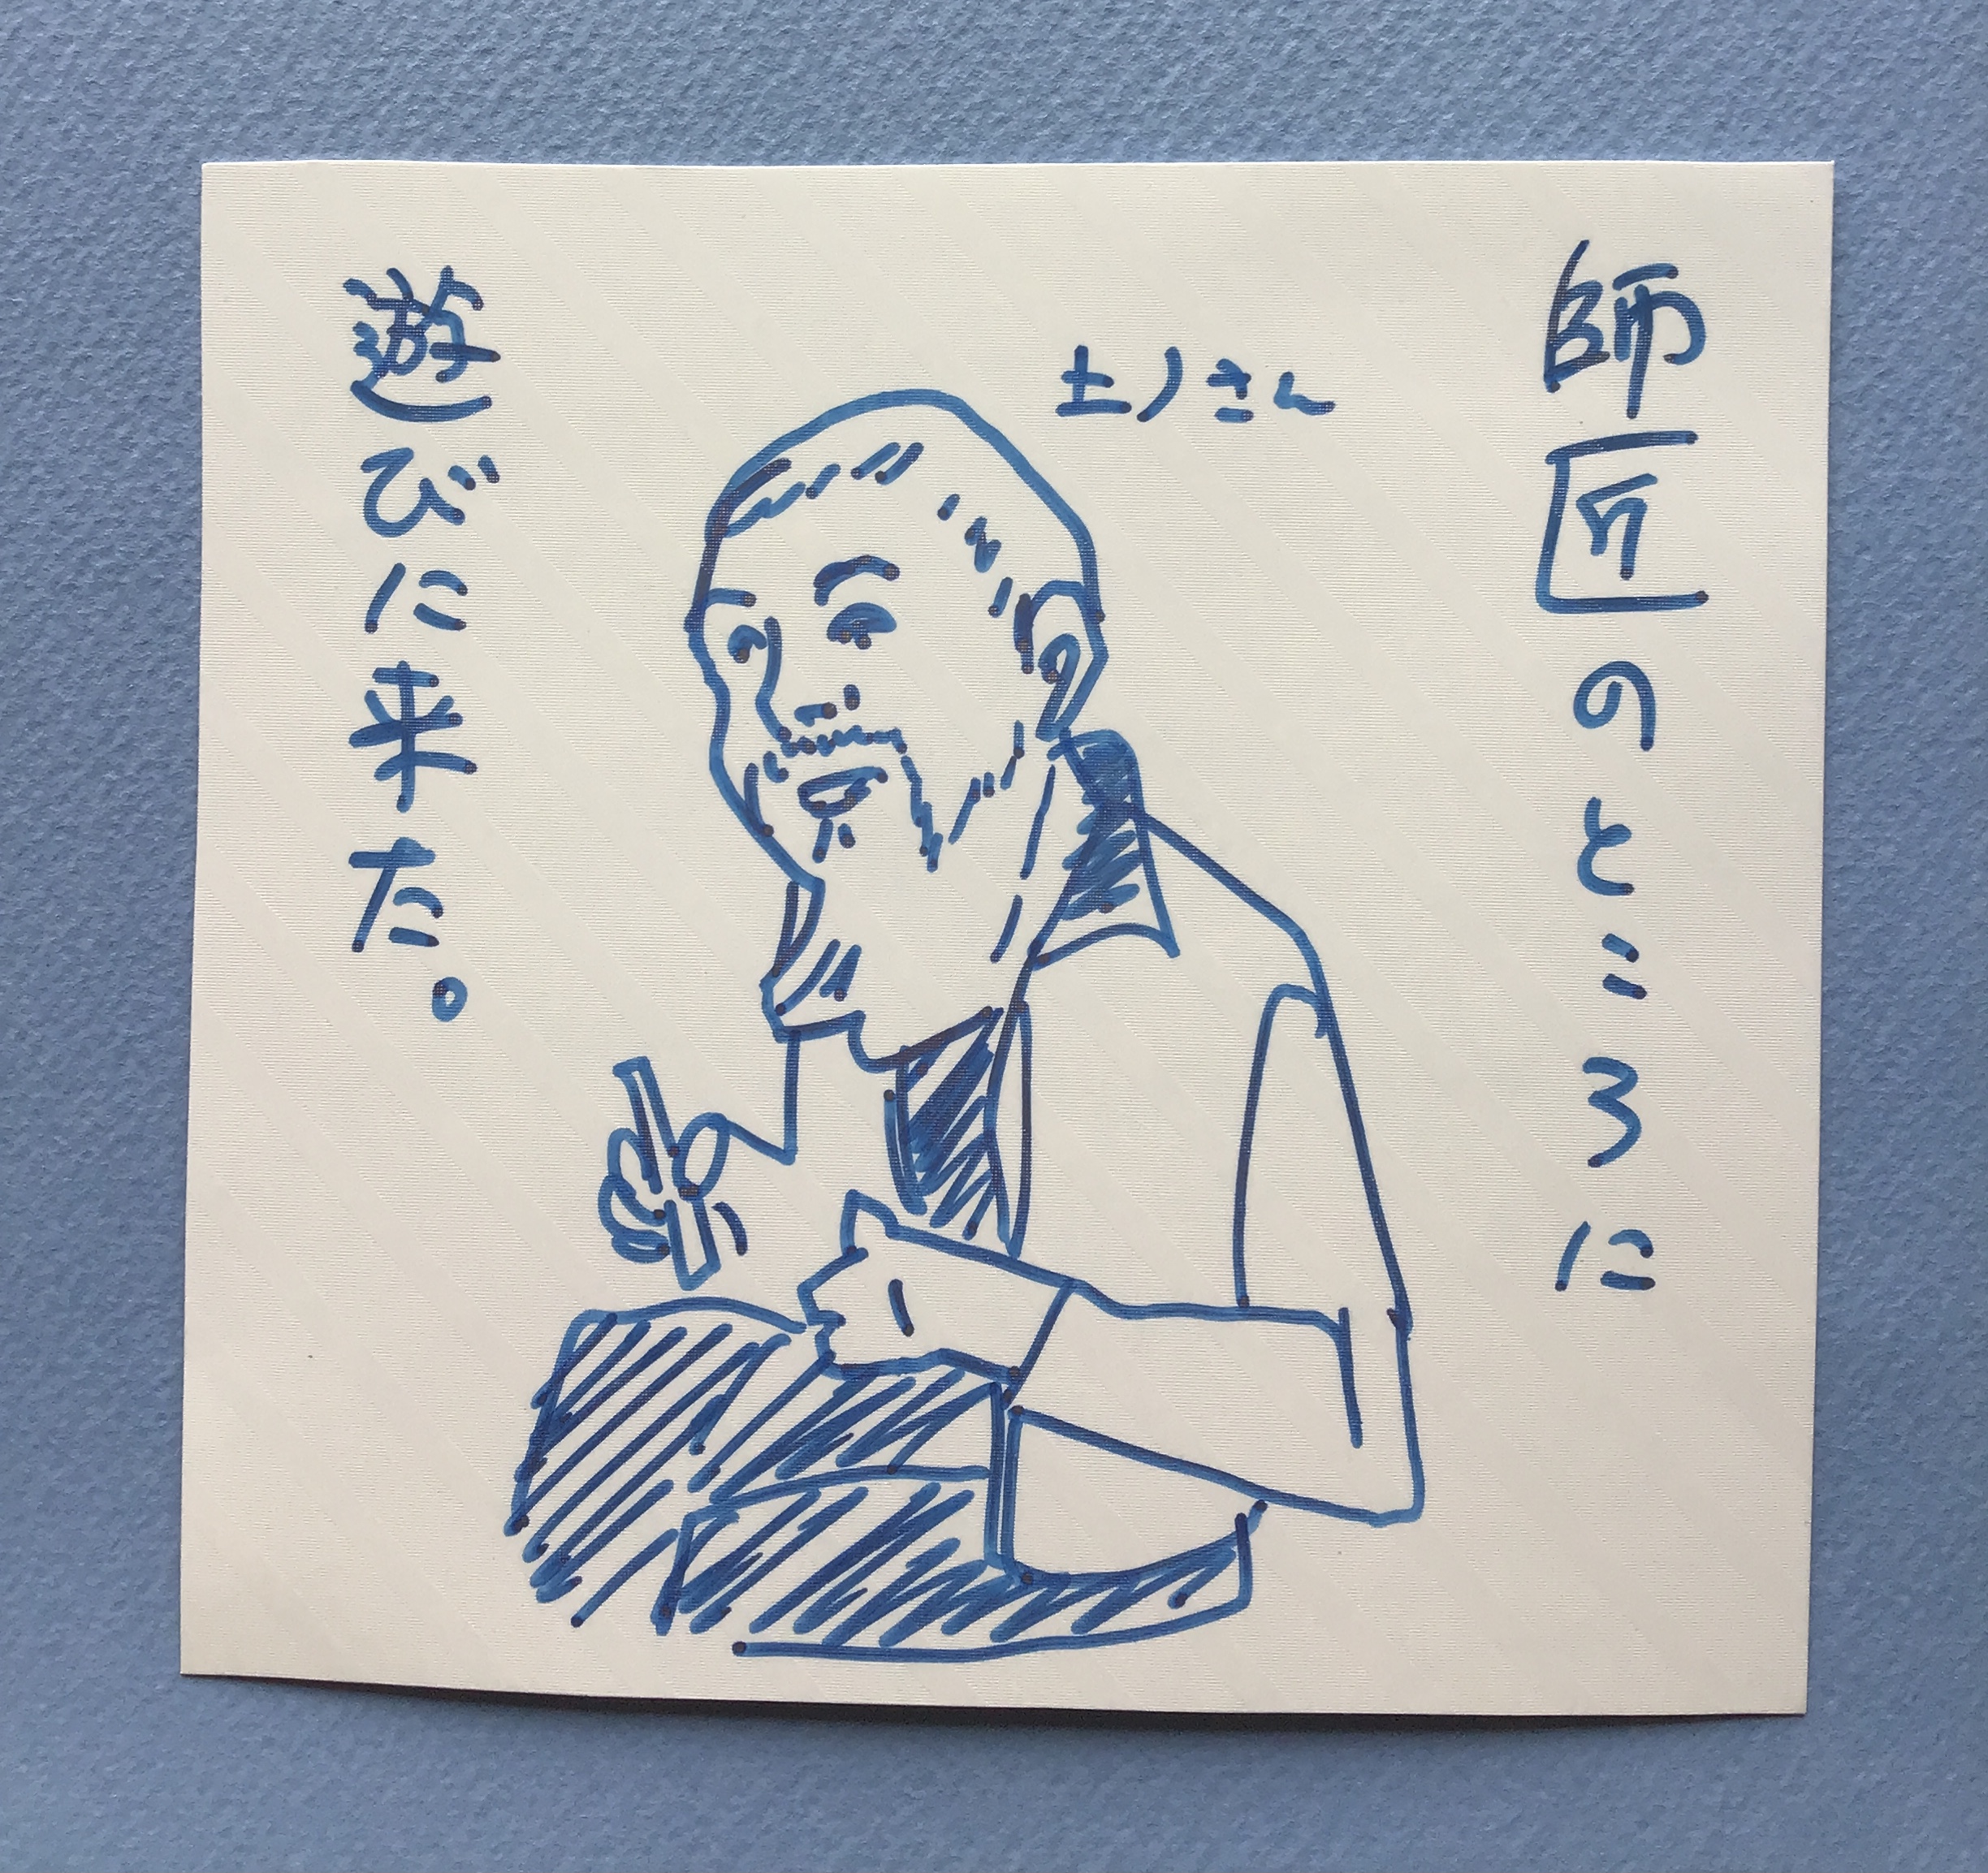 師匠のところに
土ノさん
遊びに来た。